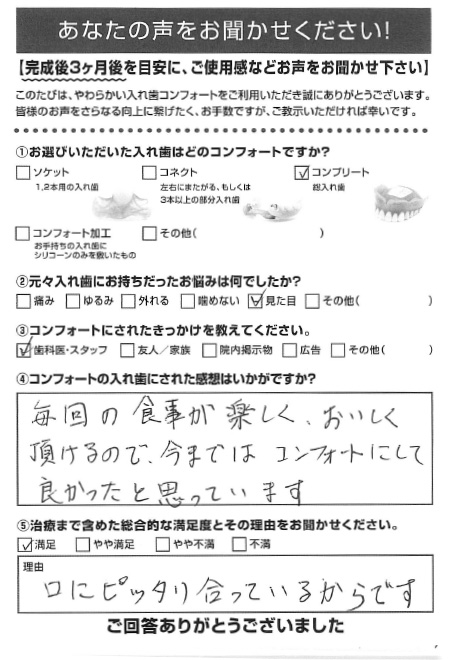 あなたの声をお聞かせください!
【完成後3ヶ月後を目安に、ご使用感などお声をお聞かせ下さい】
このたびは、やわらかい入れ歯コンフォートをご利用いただき誠にありがとうございます。
皆様のお声をさらなる向上に繋げたく、お手数ですが、ご教示いただければ幸いです。
①お選びいただいた入れ歯はどのコンフォートですか?
□ソケット □コネクト ☑コンプリート
1,2本用の入れ歯 左右にまたがる、もしくは 総入れ歯
3本以上の部分入れ歯
□コンフォート加工 □その他( )
お手持ちの入れ歯に
シリコーンのみを敷いたもの
②元々入れ歯にお持ちだったお悩みは何でしたか?
□痛み □ゆるみ □外れる □噛めない ☑見た目 □その他( )
③コンフォートにされたきっかけを教えてください。
☑歯科医・スタッフ □友人/家族 □院内掲示物 □広告 □その他( )
④コンフォートの入れ歯にされた感想はいかがですか?
毎回の食事が楽しく、おいしく
頂けるので、今まではコンフォートにして
良かったと思っています
⑤治療まで含めた総合的な満足度とその理由をお聞かせください。
☑満足 □やや満足 □やや不満 □不満
理由
口にピッタリ合っているからです
ご回答ありがとうございました